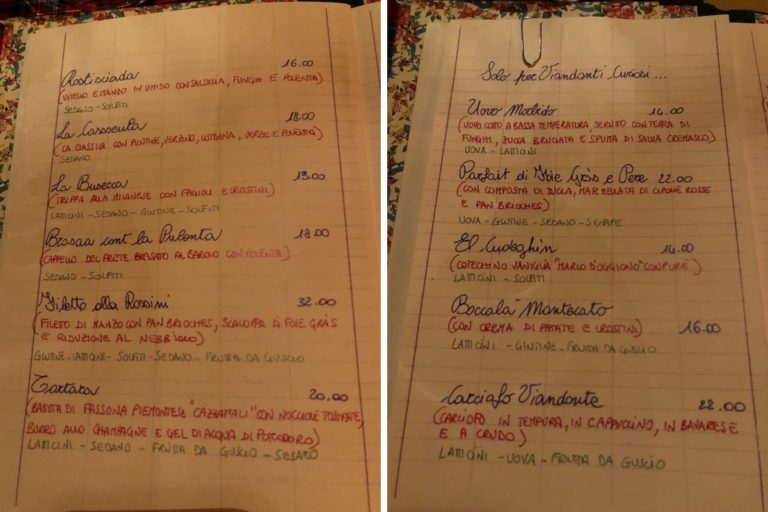 Rostisciada 16.00
(VITELLO E MANZO IN UMIDO CON SALSICCIA, FUNGHI E POLENTA)
SEDANO - SOLFITI
La Cassoeula 18.00
(LA CLASSICA CON PUNTINE, VERZINO, COTENNA, VERZE E POLENTA)
SEDANO
La Busecca 13.00
(TRIPPA ALLA MILANESE CON FAGIOLI E CROSTINI)
LATTICINI - SEDANO - GLUTINE - SOLFITI
Brasaa cont la Pulenta 18.00
(CAPPELLO DEL PRETE BRASATO AL BAROLO CON POLENTA)
SEDANO - SOLFITI
Filetto alla Rossini 32.00
(FILETTO DI MANZO CON PAN BRIOCHES, SCALOPPA DI FOIE GRÀS
E RIDUZIONE AL NEBBIOLO)
GLUTINE - LATTICINI - SOLFITI - SEDANO - FRUTTA DA GUSCIO
Tartara 20.00
(BATTUTA DI FASSONA PIEMONTESE "CAZZAMALI" CON NOCCIOLE TOSTATE,
BURRO ALLO CHAMPAGNE E GEL DI ACQUA DI POMODORO)
LATTICINI - SEDANO - FRUTTA DA GUSCIO - SESAMO
Solo per Viandanti Curiosi...
Uovo Morbido 14.00
(UOVO COTTO A BASSA TEMPERATURA, SERVITO CON TERRA DI
FUNGHI, ZUCCA BRUCIATA E SPUMA DI SALVA CREMASCO)
UOVA - LATTICINI
Parfait di Foie Gràs e Pere 22.00
(CON COMPOSTA DI ZUCCA, MARMELLATA DI CIPOLLE ROSSE
E PAN BRIOCHES)
UOVA - GLUTINE - SEDANO - SENAPE
El Cudeghin 14.00
(COTECHINO VANIGLIA "MARCO D'OGGIONO" CON PURÈ)
LATTICINI - SOLFITI
Baccalà Mantecato
(CON CREMA DI PATATE E CROSTINI) 16.00
LATTICINI - GLUTINE - FRUTTA DA GUSCIO
Carciofo Viandante 22.00
(CARCIOFO IN TEMPURA, IN CAPPUCCINO, IN BAVARESE
E A CRUDO)
LATTICINI - UOVA - FRUTTA DA GUSCIO